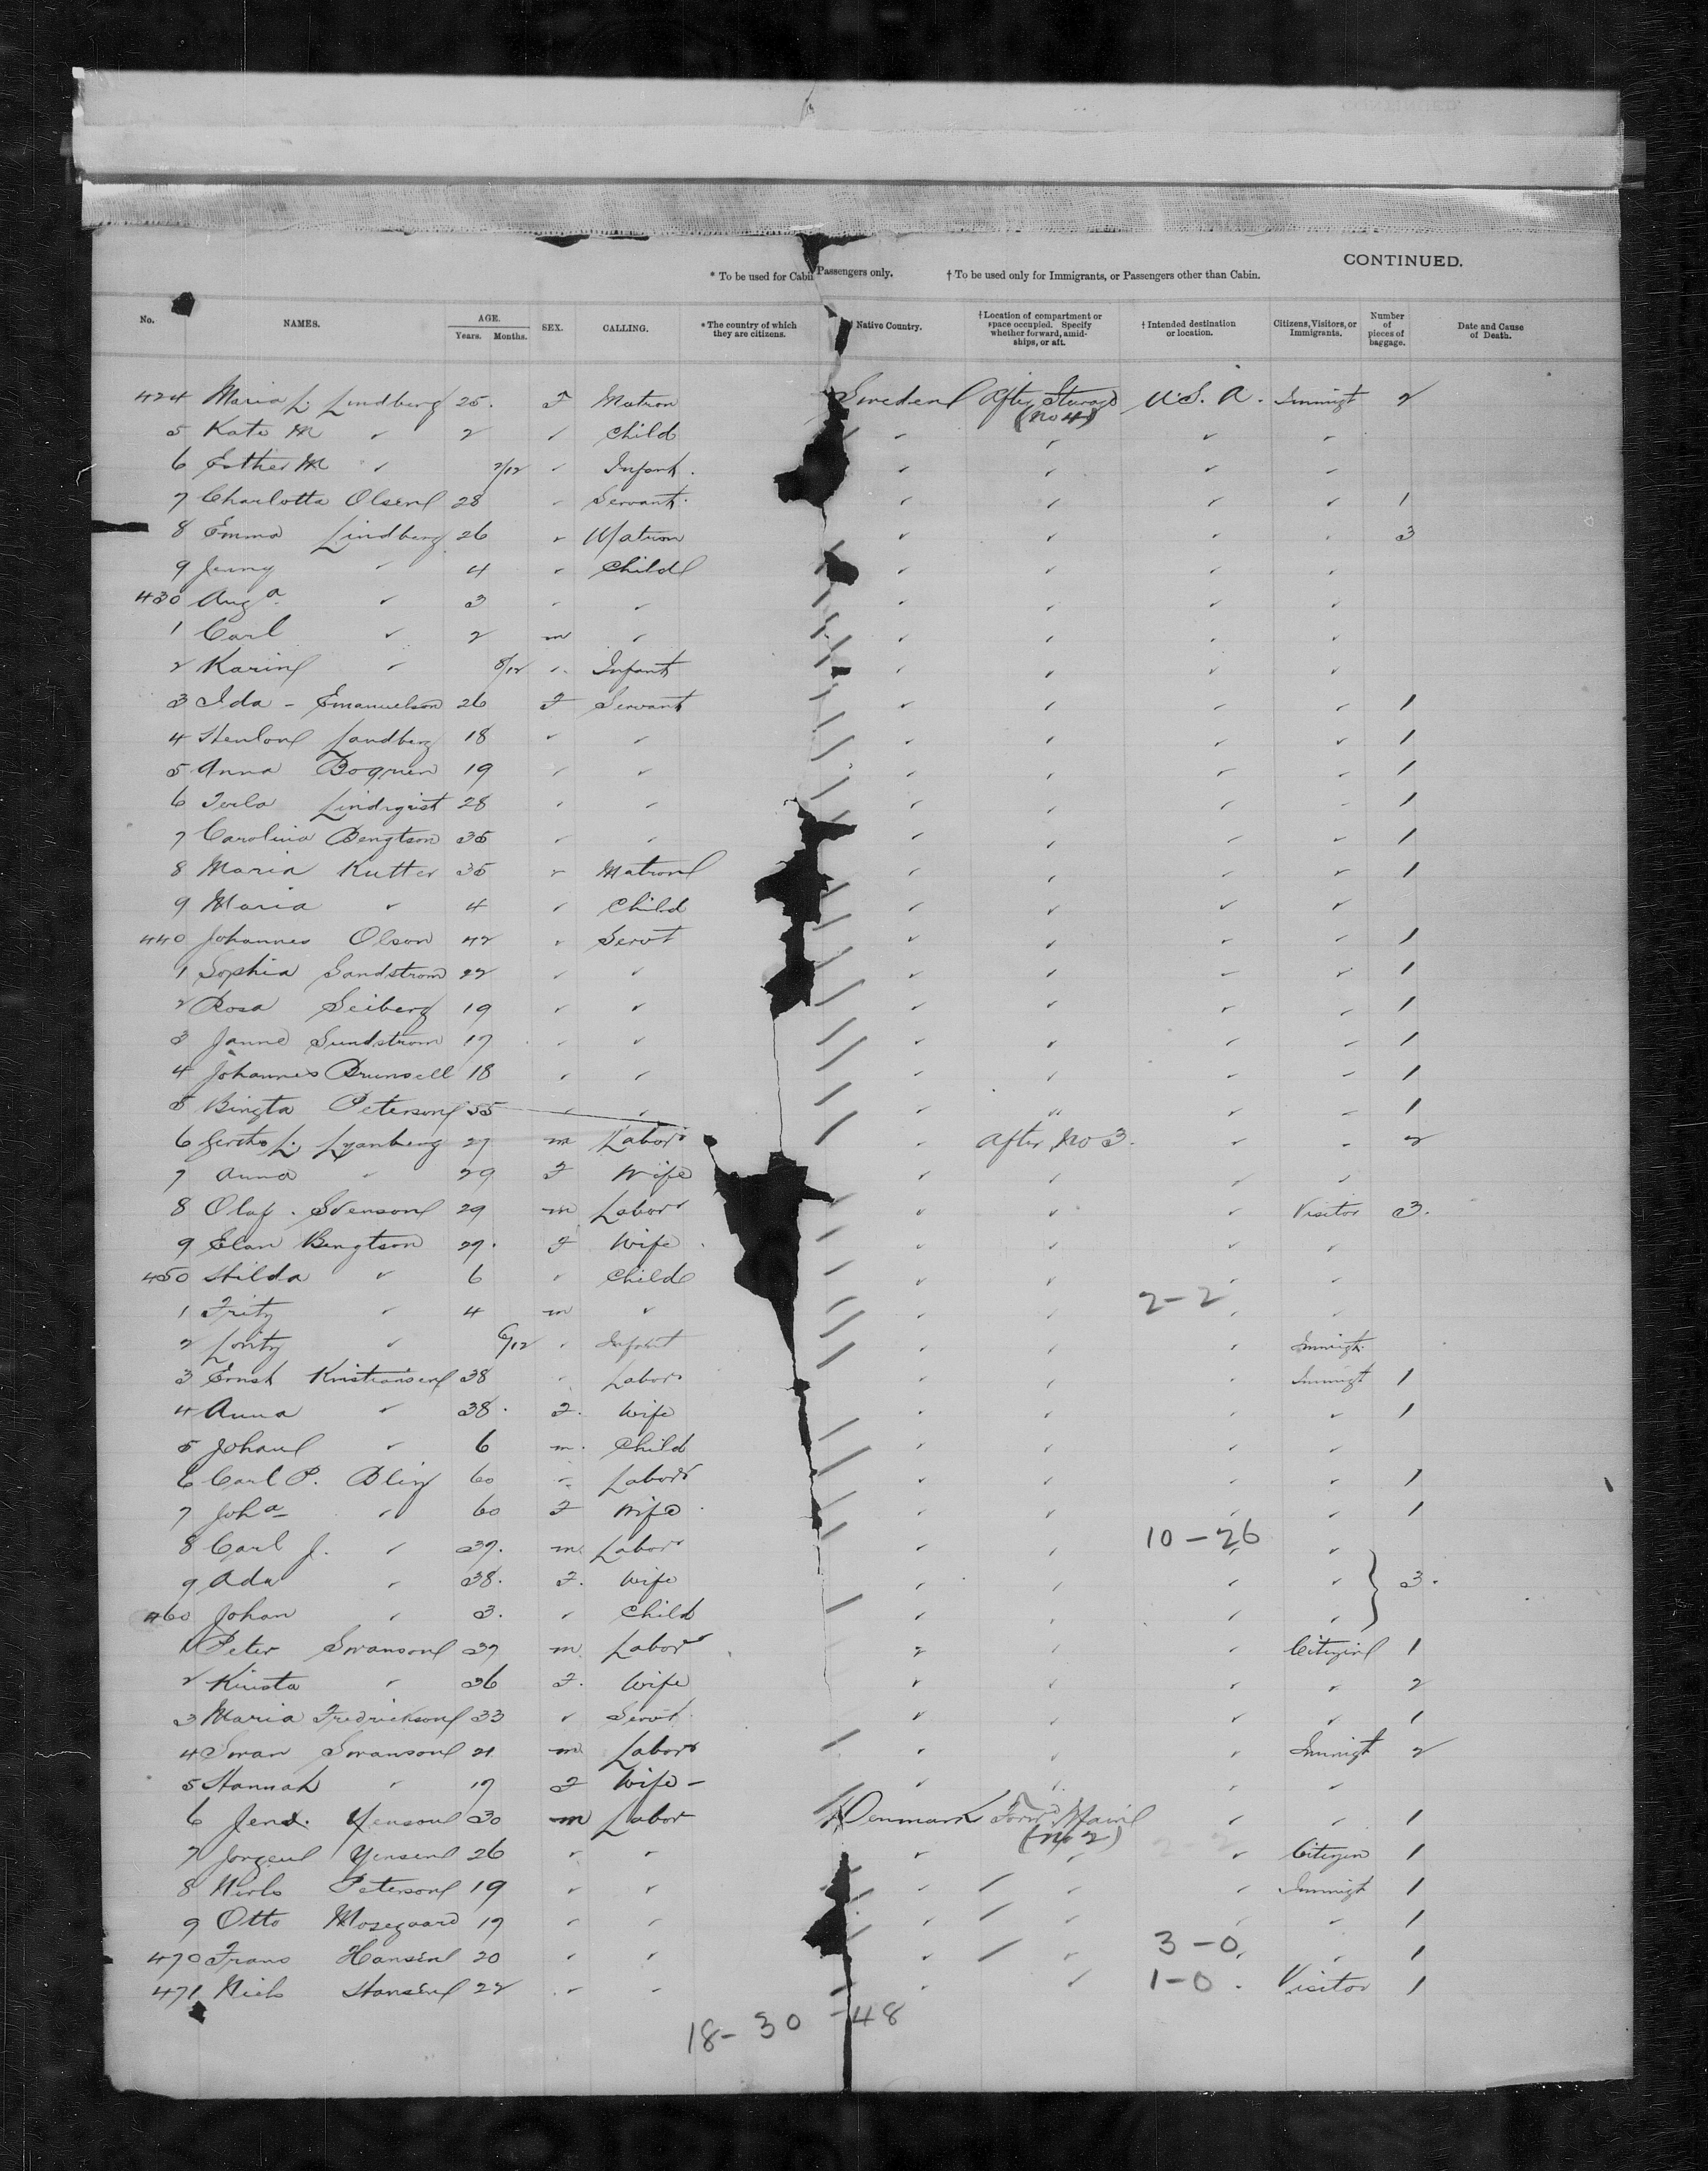 CONTINUED.
* To be used for Cabin Passengers only. † To be used only for Immigrants, or Passengers other than Cabin.
No. NAMES. AGE. Years. Months. SEX. CALLING. * The country of which they are citizens. Native Country. † Location of compartment or space occupied. Specify whether forward, amidships, or aft. † Intended destination or location. Citizens, Visitors, or Immigrants. Number of pieces of baggage. Date and Cause of Death.
424 Maria L. Lindberg 25. F Matron Sweden After Sturage U.S.A. Immigt 2
(No 4)
5 Kate M " 2 " Child " " " "
6 Esther M " 2/12 " Infant. " " " "
7 Charlotta Olsen 28 " Servant. " " " " 1
8 Emma Lindberg 26 " Matron " " " " 3
9 Jenny " 4 " Child " " " "
430 Auga " 3 " " " " " "
1 Carl " 2 m " " " " "
2 Karin " 8/12 " Infant " " " "
3 Ida - Emanuelson 26 F Servant " " " " 1
4 Landberg 18 " " " " " " 1
5 Anna Boquren 19 " " " " " " 1
6 Lindqvist 28 " " " " " " 1
7 Carolina Bengtson 35 " " " " " " 1
8 Maria Kutter 35 " Matron " " " " 1
9 Maria " 4 " Child " " " "
440 Johannes Olson 42 " Servt " " " " 1
1 Sophia Sandstrom 22 " " " " " " 1
2 Rosa Seiberg 19 " " " " " " 1
3 Janne Sundstrom 17 " " " " " " 1
4 Johannes Brunsell 18 " " " " " " 1
5 Bingta Peterson 55 " " " " " " 1
6 L. Lyanberg 27 m Labor " After No 3. " " 2
7 Anna " 29 F Wife " " " "
8 Olaf. Svenson 29 m Labor " " " Visitor 3.
9 Elan Bengtson 29. F Wife " " " "
450 Hilda " 6 " Child " " " "
2-2
1 Fritz " 4 m " " " " "
2 " 6/12 " Infant " " " Immigt.
3 Ernst Kristiansen 38 " Labor " " " Immigt 1
4 Anna " 38. F. Wife " " " " 1
5 Johan " 6 m. Child " " " "
6 Carl P. 60 " Labor " " " " 1
7 Joha " 60 F Wife " " " " 1
10-26
8 Carl J. " 37. m. Labor " " " "
9 Ada " 38. F. Wife " " " " 3.
460 Johan " 3. " Child " " " "
1 Peter Swanson 37 m. Labor " " " Citizen 1
2 Kirsta " 36 F. Wife " " " " 2
3 Maria Fredrickson 33 " Servt. " " " " 1
4 Swan Swanson 21 m Labor " " " Immigt 2
5 Hannah " 19 F Wife - " " " "
6 Jens. Yenson 30 m Labor Denmark Forwd Main " " 1
(No 2)
7 Jorgen Yensen 26 " " " " " Citizen 1
8 Peterson 19 " " " " " Immigt 1
9 Otto Mosegaard 19 " " " " " " 1
470 Frans Hansen 20 " " " " 3-0 " 1
471 Niels Hansen 22 " " " " 1-0 Visitor 1
18-30-48